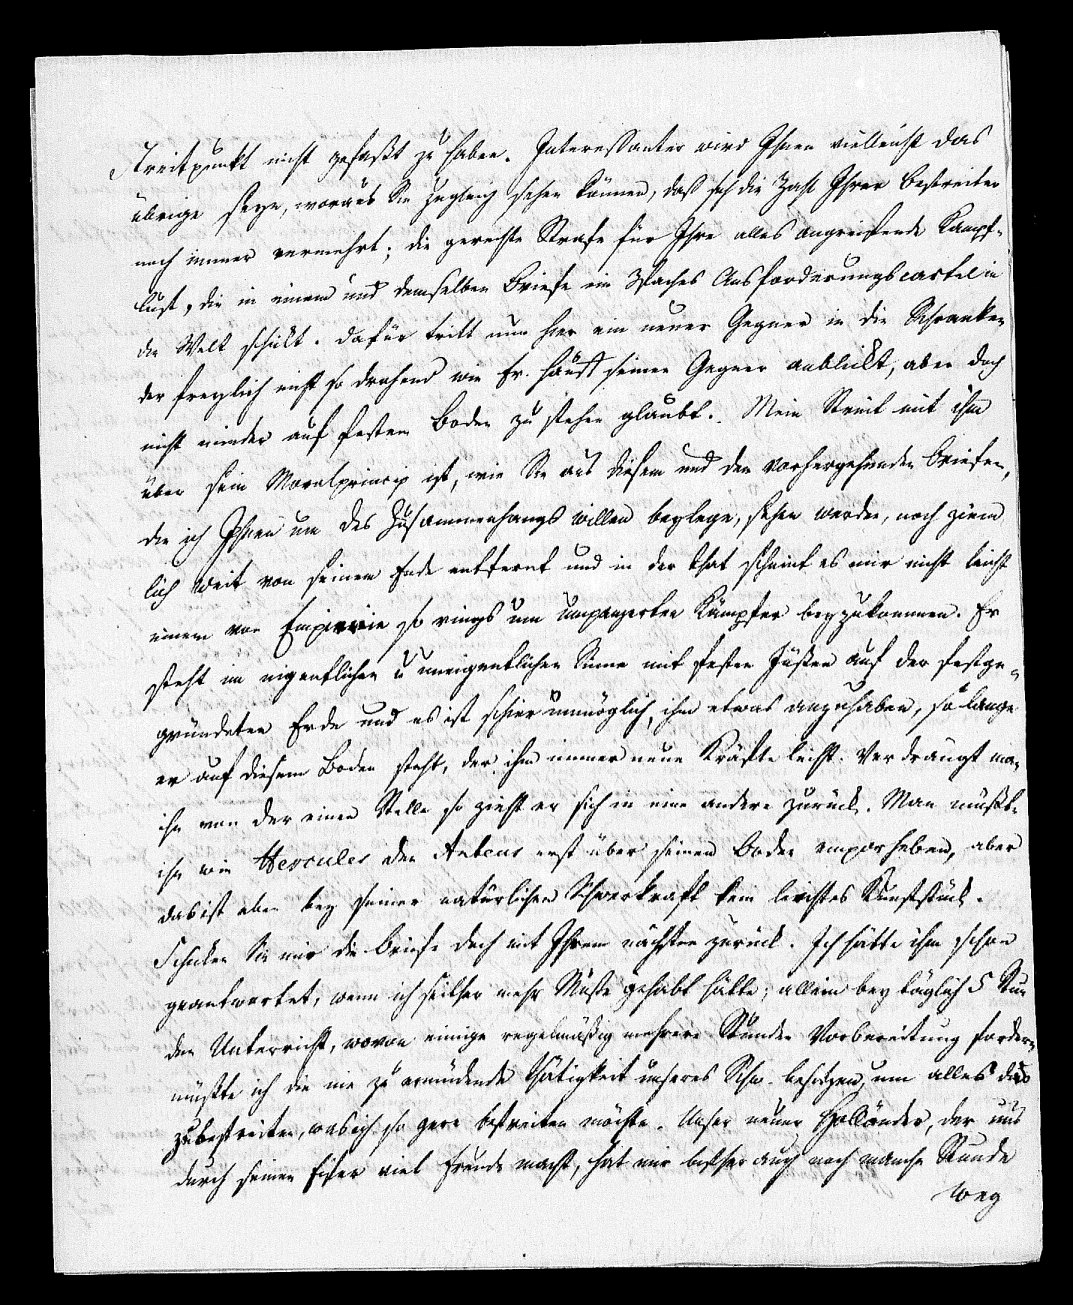 Streitpunkt nicht gefaßt zu haben. Interessanter wird Ihnen vielleicht das
übrige seyn, woraus Sie zugleich sehen können, daß sich die Zahl Ihrer Bestreiter
noch immer vermehrt; die gerechte Strafe für Ihre alles angreifende Kampf-
lust, die in einem und demselben Briefe ein 3faches Ausforderungscartel in
die Welt schikt. Dafür tritt nun hier ein neuer Gegner in die Schranken
der freylich nicht so drohend wie Hr. seinen Gegner anblickt, aber doch
nicht minder auf festem Boden zu stehen glaubt. Mein Streit mit ihm
über sein Moralprincip ist, wie Sie aus diesem und den vorhergehenden Briefen,
die ich Ihnen um des Zusammenhangs willen beylege, sehen werden, noch ziem
lich weit von seinem Ende entfernt und in der That scheint es mir nicht leicht
einem von Empirie so rings um umpanzerten Kämpfer beyzukommen. Er
steht im eigentlichen u uneigentlichen Sinne mit festen Füßen auf der festge-
gründeten Erde und es ist schier unmöglich, ihm etwas anzuhaben, so lange
er auf diesem Boden steht, der ihm immer neue Kräfte leiht. Verdrängt man
ihn von der einen Stelle so zieht er sich in eine andere zurück. Man müßte
ihn wie Hercules den Antaeus erst über seinen Boden emporheben, aber
das ist eben bey seiner natürlichen Schwerkraft kein leichtes Kunststück.
Schicken Sie mir die Briefe doch mit Ihrem nächsten zurück. Ich hätte ihm schon
geantwortet, wenn ich seither mehr Muße gehabt hätte; allein bey täglich 5 Stun
den Unterricht, wovon einige regelmäßig mehrere Stunden Vorbereitung fordern
müßte ich die nie zu ermüdende Thätigkeit unseres Schw. besitzen, um alles das
zu bestreiten, was ich so gern bestreiten möchte. Unser neuer Holländer, der uns
durch seinen Eifer viel Freude macht, hat mir bisher auch noch manche Stunde
weg